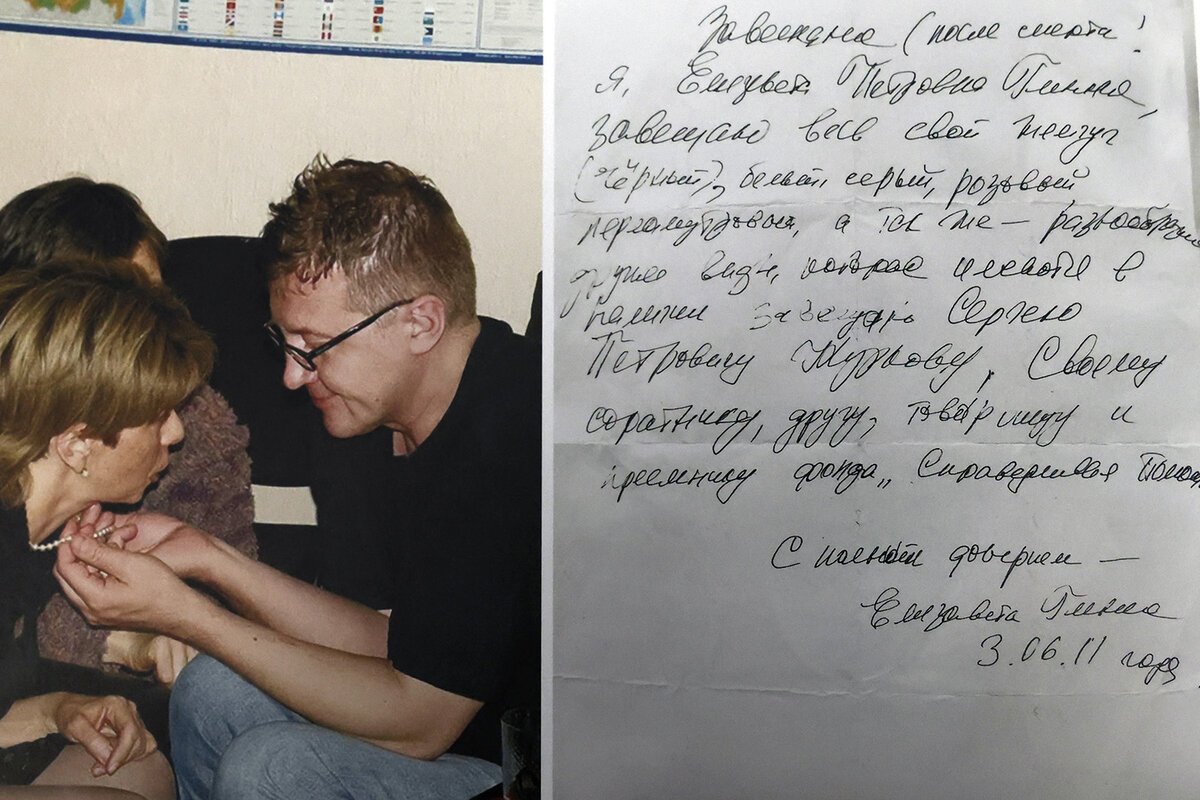 Завещание (после смерти!
Я, Елизавета Петровна Глинка,
завещаю весь свой жемчуг
(чёрный), белый, серый, розовый
перламутровый, а так же — разнообразные
другие виды, которые имеются в
наличии завещаю Сергею
Петровичу Куркову, Своему
соратнику, другу, товарищу и
преемнику фонда „Справедливая Помощь
С полным доверием —
Елизавета Глинка
3.06.11 года